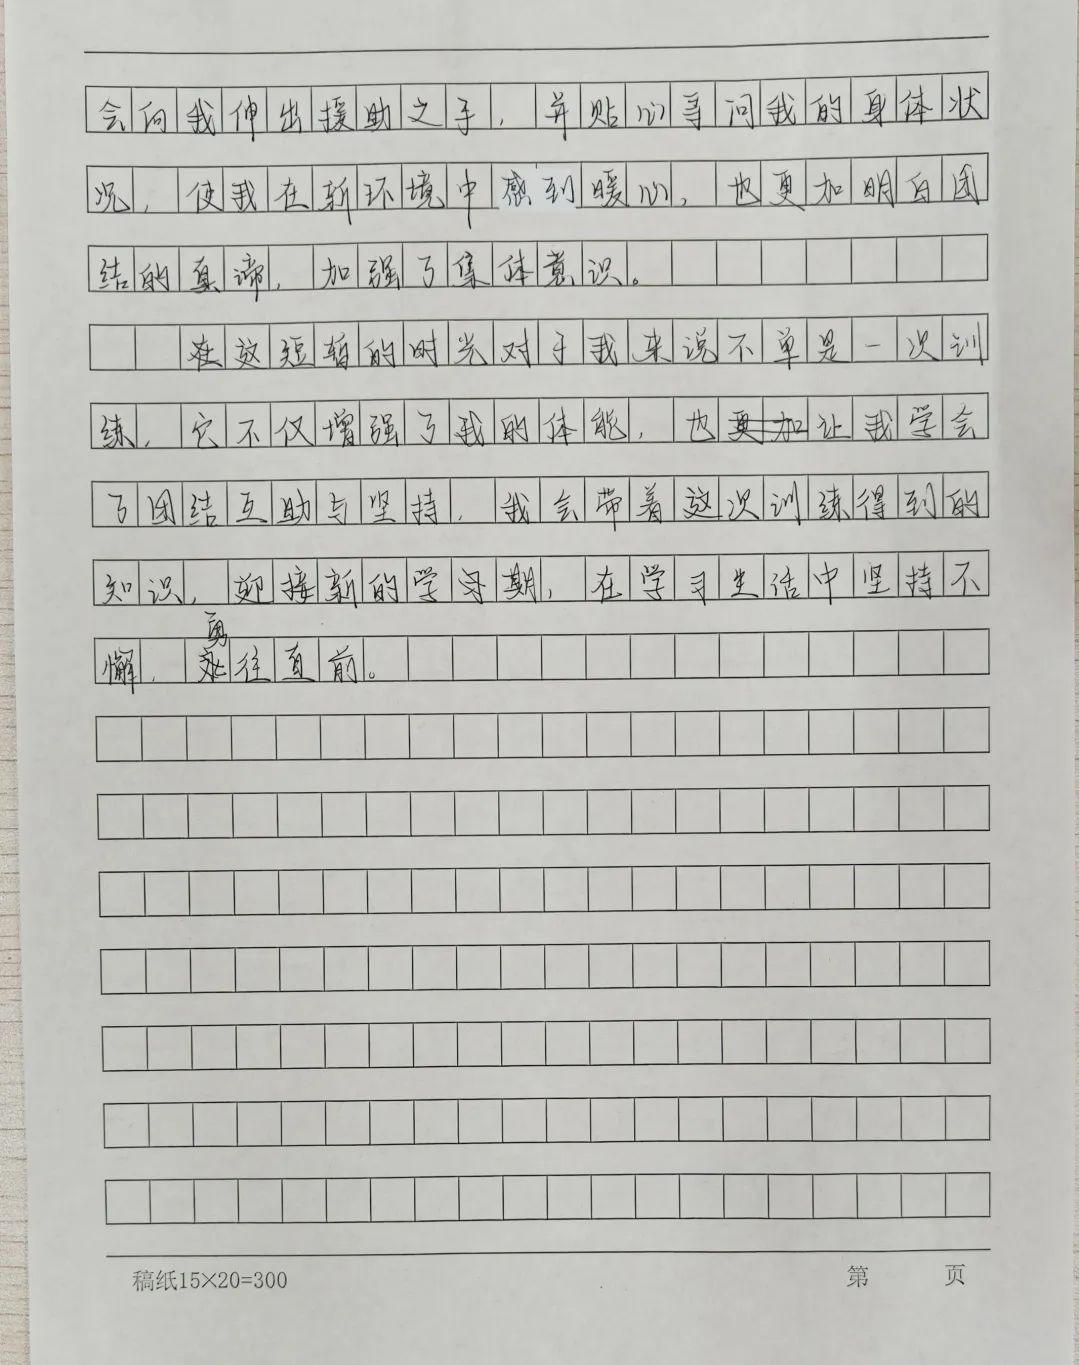 会向我伸出援助之手，并贴心寻问我的身体状
况，使我在新环境中感到暖心，也更加明白团
结的真谛，加强了集体意识。
在这短暂的时光对于我来说不单是一次训
练，它不仅增强了我的体能，也更加让我学会
了团结互助与坚持，我会带着这次训练得到的
知识，迎接新的学习期，在学习生活中坚持不
懈，勇往直前。
稿纸15×20=300
第 页